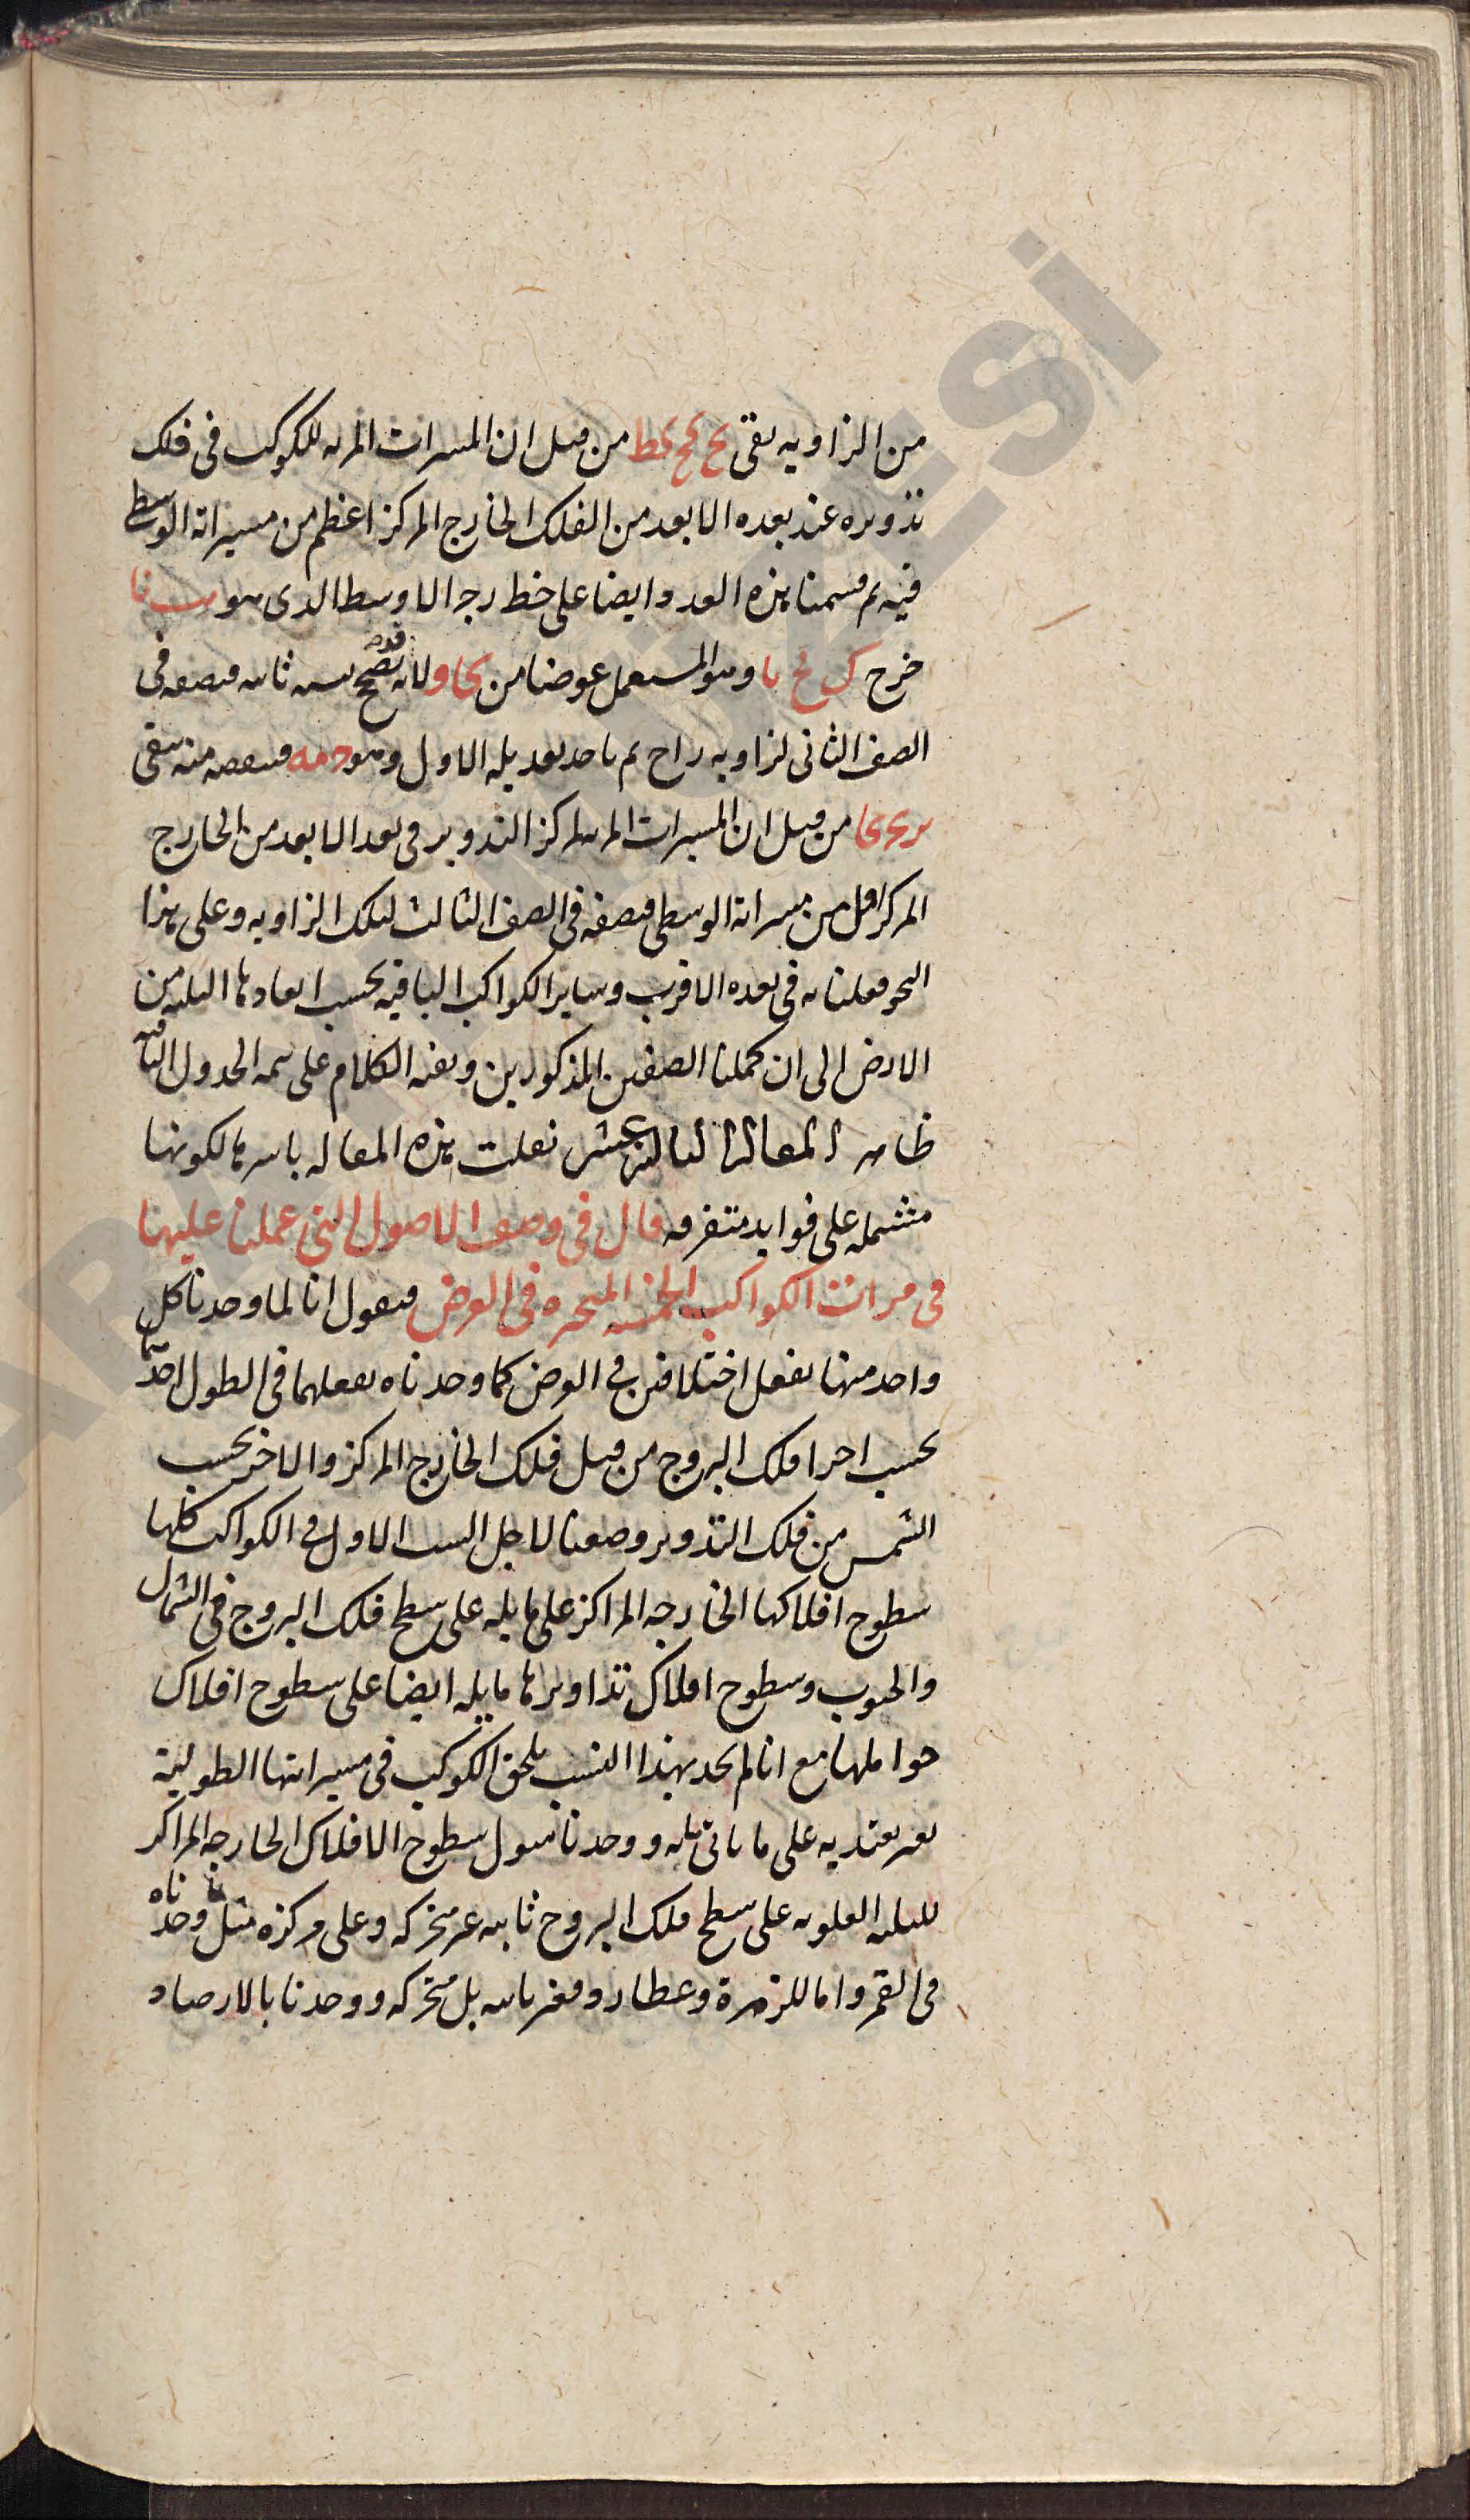 من الزاويه بقى كح كط من قبل ان المسيرات المرئيه للكوكب فى فلك
تدويره عند بعده الابعد من الفلك الخارج المركز اعظم من مسيراته الوسطى
فيه ثم قسمنا هذه العدد ايضا على خط رجه الاوسط الذى هو نا
خرج ك لح نا وهو المستعمل عوضا من كا و لانه قدر نضح ثانيه فنضعه فى
الصف الثانى لزاويه د ا ح ثم ناخذ تعديله الاول وهو د مه فننقصه منه يبقى
من قبل ان المسيرات المرئيه لمركز التدوير فى بعد الابعد من الخارج
المركز اقل من مسيراته الوسطى فنضعه فى الصف الثالث لتلك الزاويه وعلى هذا
النحو فعلنا به فى بعده الاقرب وساير الكواكب الباقيه بحسب ابعادها الثلثه من
الارض الى ان كملنا الصفين المذكورين وبقيه الكلام على تتمه الجدول الباقيه
ظاهر المقاله الثالثه عشر نقلت هذه المقاله باسرها لكونها
مشتمله على فوايد متفرقه قال فى وصف الاصول التى عملنا عليها
فى مرات الكواكب الخمسه المتحيره فى العرض فنقول انا لما وجدنا كل
واحد منها يفعل اختلافين فى العرض كما وجدناه يفعلهما فى الطول احدهما
بحسب اجزا فلك البروج من قبل فلك الخارج المركز والاخر بحسب
الشمس من فلك التدوير وضعنا لاجل السبب الاول فى الكواكب كلها
سطوح افلاكها الخارجه المراكز على مايله على سطح فلك البروج فى الشمال
والجنوب وسطوح افلاك تداويرها مايله ايضا على سطوح افلاك
حواملها مع انا لم نجد بهذا السبب يلحق الكوكب فى مسيراتها الطولية
تغير يعتد به على ما ياتى بيانه ووجدنا ميول سطوح الافلاك الخارجه المراكز
للثلثه العلويه على سطح فلك البروج ثابته غير متحركه وعلى مركزه مثل ما وجدناه
فى القمر واما للزهرة وعطارد فغير ثابته بل متحركه ووجدنا بالارصاد